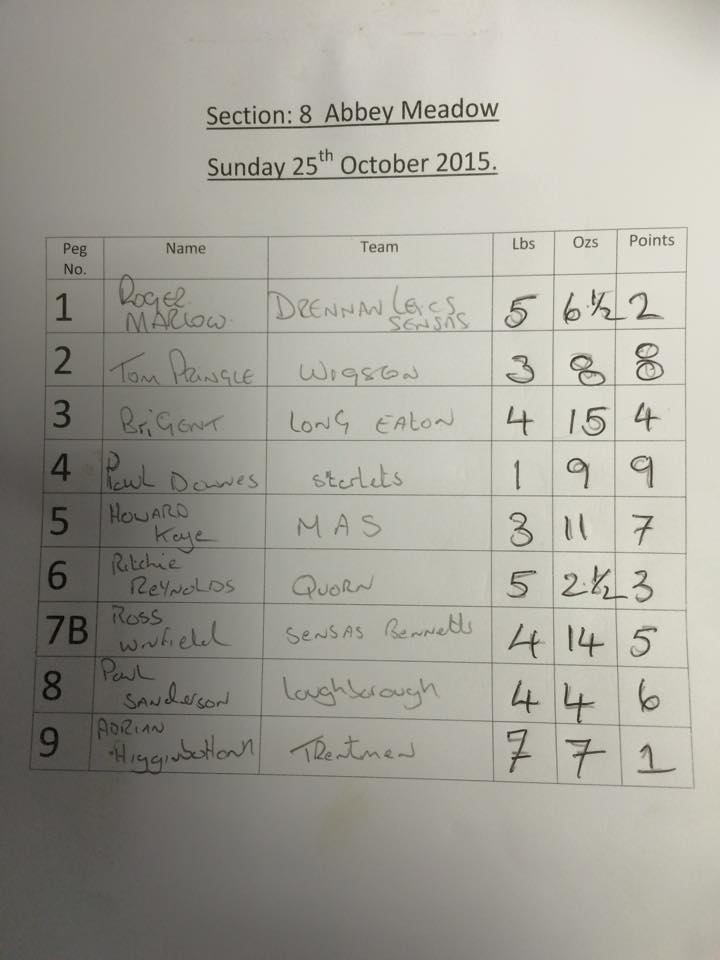 Section: 8 Abbey Meadow
Sunday 25th October 2015.
Peg No. Name Team Lbs Ozs Points
1 Roger MARLOW DRENNAN Leics SENSAS 5 6 ½ 2
2 Tom PRINGLE WIGSTON 3 8 8
3 BriGENT LONG EATON 4 15 4
4 Paul Downes starlets 1 9 9
5 HOWARD Kaye MAS 3 11 7
6 Ritchie REYNOLDS QUORN 5 2 ½ 3
7B Ross Winfield SENSAS Bennetts 4 14 5
8 Paul SANDERSON Loughborough 4 4 6
9 ADRIAN Higginbottom Trentmen 7 7 1